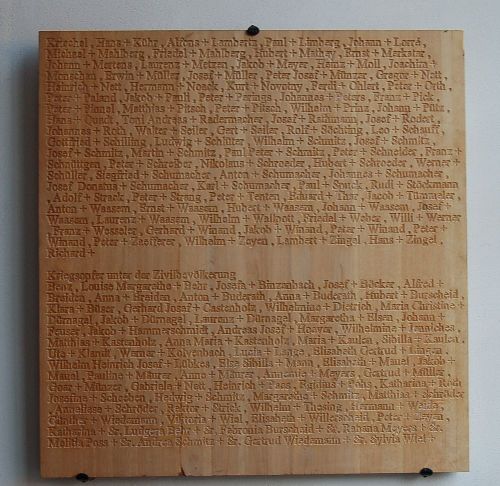 Kriechel, Hans + Kühr, Alfons + Lambertz, Paul + Limberg, Johann + Lorré,
Michael + Mahlberg, Friedel + Mahlberg, Hubert + Mathey, Ernst + Merkstar,
Johann + Mertens, Laurenz + Metzen, Jakob + Meyer, Heinz + Moll, Joachim +
Monschau, Erwin + Müller, Josef + Müller, Peter Josef + Münzer, Gregor + Nett,
Heinrich + Nett, Hermann + Noack, Kurt + Novotny, Ferdi + Ohlert, Peter + Orth,
Peter + Paland, Jakob + Paull, Peter + Perings, Johannes + Peters, Franz + Pick,
Peter + Pionel, Matthias + Pitsch, Peter + Pitsch, Wilhelm + Prinz, Johann + Pütz,
Hans + Quadt, Toni Andreas + Radermacher, Josef + Rathmann, Josef + Rodert,
Johannes + Roth, Walter + Seiler, Gert + Seiler, Rolf + Söchting, Leo + Schauff,
Gottfried + Schilling, Ludwig + Schlüter, Wilhelm + Schmitz, Josef + Schmitz,
Josef + Schmitz, Martin + Schmitz, Paul Peter + Schmitz, Peter + Schneider, Franz +
Schnütgen, Peter + Schreiber, Nikolaus + Schroeder, Hubert + Schroeder, Werner +
Schüller, Siegfried + Schumacher, Anton + Schumacher, Johannes + Schumacher,
Josef Donatus + Schumacher, Karl + Schumacher, Paul + Spuck, Rudi + Stöckmann
, Adolf + Strack, Peter + Strang, Peter + Tenten, Eduard + Thar, Jacob + Tümmeler,
Anton + Waasem, Ernst + Waasem, Hubert + Waasem, Johann + Waasem, Josef +
Waasem, Laurenz + Waasem, Wilhelm + Wallpott, Friedel + Weber, Willi + Werner
, Franz + Wesseler, Gerhard + Winand, Jakob + Winand, Peter + Winand, Peter +
Winand, Peter + Zaefferer, Wilhelm + Zeyen, Lambert + Zingel, Hans + Zingel,
Richard +
Kriegsopfer unter der Zivilbevölkerung
Benz, Louise Margarethe + Behr, Josefa + Binzenbach, Josef + Böcker, Alfred +
Breiden, Anna + Breidan, Anton + Buderath, Anna + Buderath, Hubert + Burscheid,
Klara + Büser, Gerhard Josef + Castenholz, Wilhelmine + Dietrich, Maria Christine +
Dürnagal, Jakob + Dürnagel, Laurenz + Dürnagel, Margarethe + Elsen, Johann +
Feuser, Jakob + Hammerschmidt, Andreas Josef + Hoever, Wilhelmine + Jenniches,
Matthias + Kastenholz, Anna Maria + Kastenholz, Maria + Kaulen, Sibilla + Kaulen,
Ute + Klandt, Werner + Kolvenbach, Lucia + Lange, Elisabeth Gertrud + Lingen,
Wilhelm Heinrich Josef + Lübkes, Else Sibilla + Mann, Elisabeth + Mauel, Jakob +
Mauel, Pauline + Mäurer, Anna + Mäurer, Antonie + Meyers, Gertrud + Müller
, Goar + Münzer, Gabriele + Nett, Heinrich + Pass, Egidius + Pohs, Katharina + Roth
Josefine + Scheeben, Hedwig + Schmitz, Margarethe + Schmitz, Matthias + Schröder
, Anneliese + Schröder, Rektor + Strick, Wilhelm + Thesing, Hermann +
Günther + Wiedemann, Viktoria + Wiel, Elisabeth + Willerscheid, Peter
Katharina + Sr. Ludgera Behr + Sr. Febronia Burscheid + Sr. Rabana Meyers + Sr.
Molitia Poss + Sr. Andrea Schmitz + Sr. Gertrud Wiedemann + Sr. Sylvia Wiel +